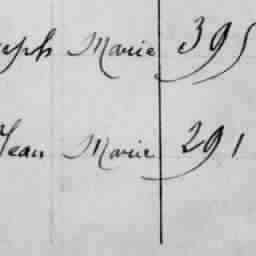 eph Marie 395
Jean Marie 291